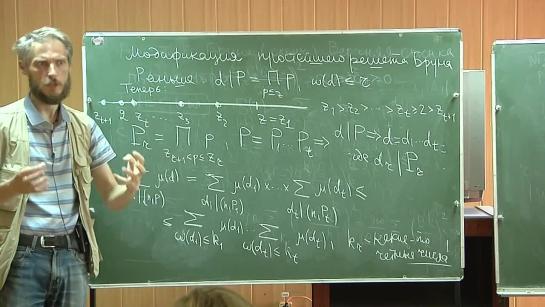 Модификация простейшего решета Бруна
Раньше d|P = ∏_{p≤z} p, ω(d) ≤ r
Теперь:
z_{t+1} 2 z_t ... z_3 z_2 z = z_1 z_1 > z_2 > ... > z_t ≥ 2 > z_{t+1}
P_r = ∏_{z_{r+1}<p≤z_r} p, P = P_1 ... P_t ⇒ d|P ⇒ d = d_1 ... d_t
где d_r | P_r
μ(d) = ∑_{d_1|(n,P_1)} μ(d_1) × ... × ∑_{d_t|(n,P_t)} μ(d_t) ≤
≤ ∑_{ω(d_1)≤k_1} μ(d_1) ... ∑_{ω(d_t)≤k_t} μ(d_t); k_r - какие-то
четные числа!